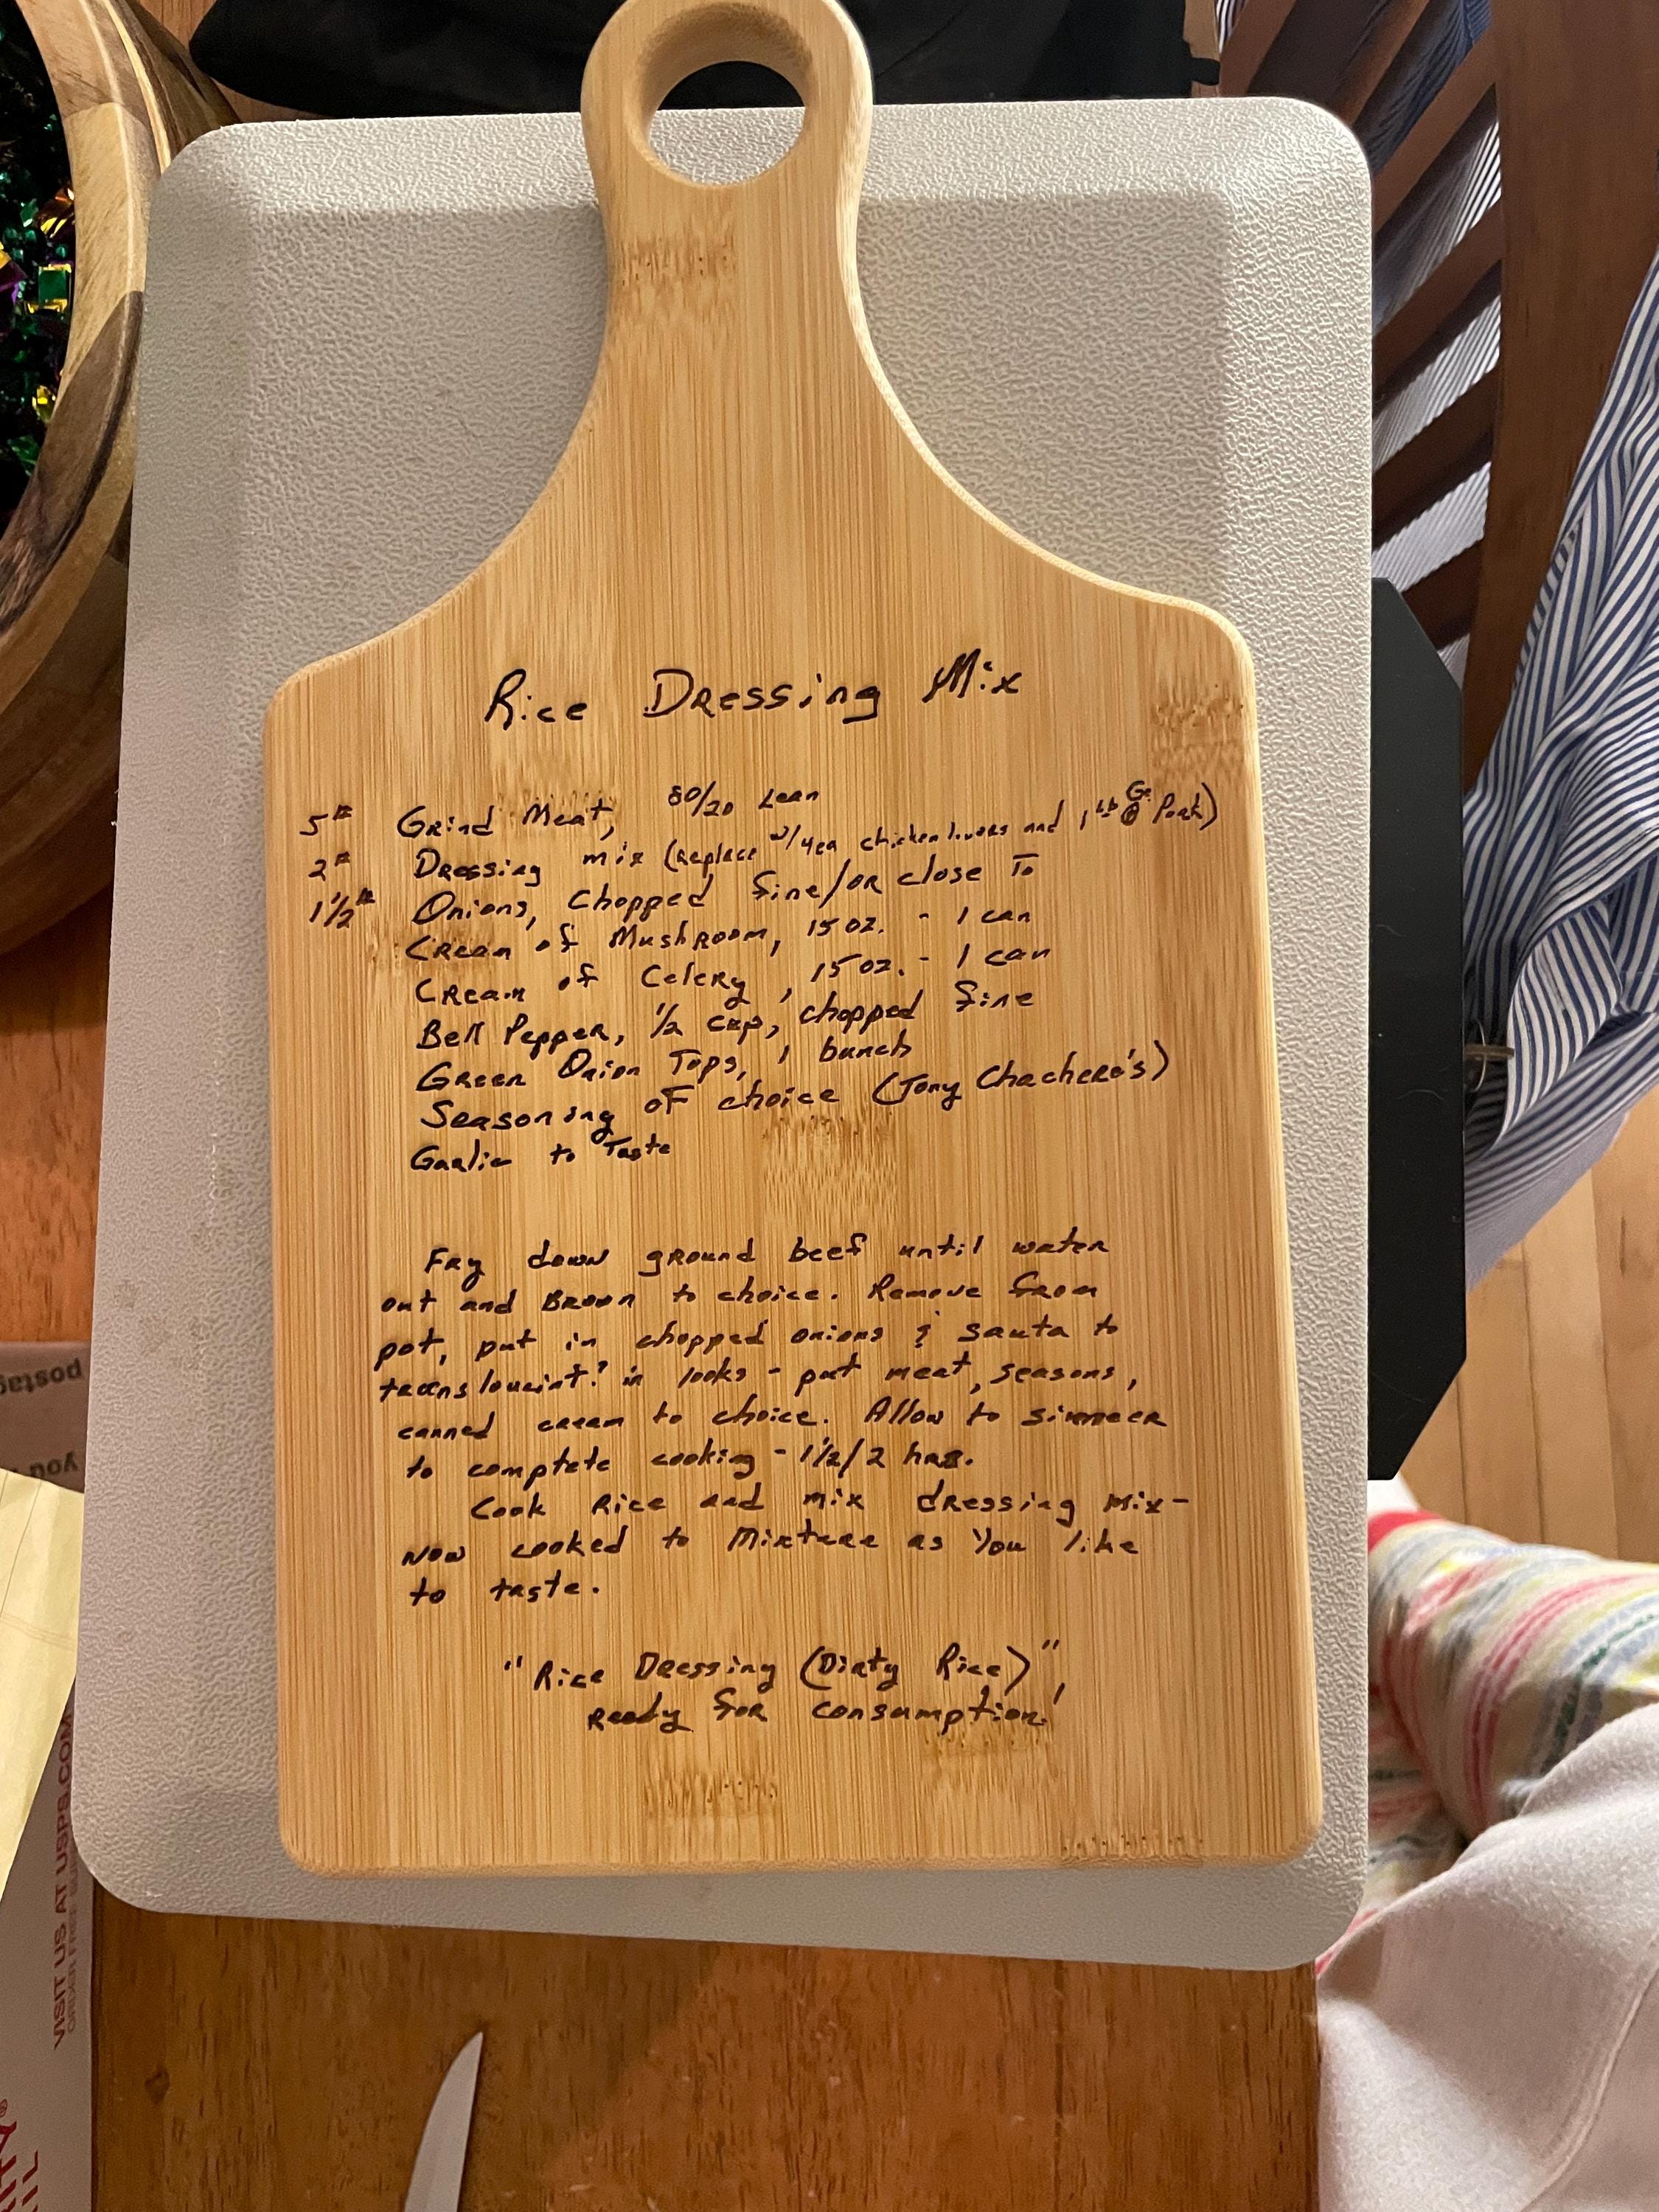 Rice Dressing Mix
5# Grind Meat, 80/20 Lean
2# Dressing mix (replace w/4ea chicken livers and 1 Lb Gr. Pork)
1 1/2# Onions, Chopped fine/or close To
Cream of Mushroom, 15 oz. - 1 can
Cream of Celery, 15 oz. - 1 can
Bell Pepper, 1/2 cup, chopped fine
Green Onion Tops, 1 bunch
Seasoning of choice (Tony Chachere's)
Garlic to Taste
Fry down ground beef until water
out and Brown to choice. Remove from
pot, put in chopped onions & sauta to
in looks - put meat, seasons,
canned cream to choice. Allow to simmeer
to complete cooking - 1 1/2/2 hrs.
Cook Rice and mix dressing mix-
Now cooked to Mixture as You like
to taste.
"Rice Dressing (Dirty Rice)",
ready for consumption!
postag
you
VISIT US AT USPS.COM